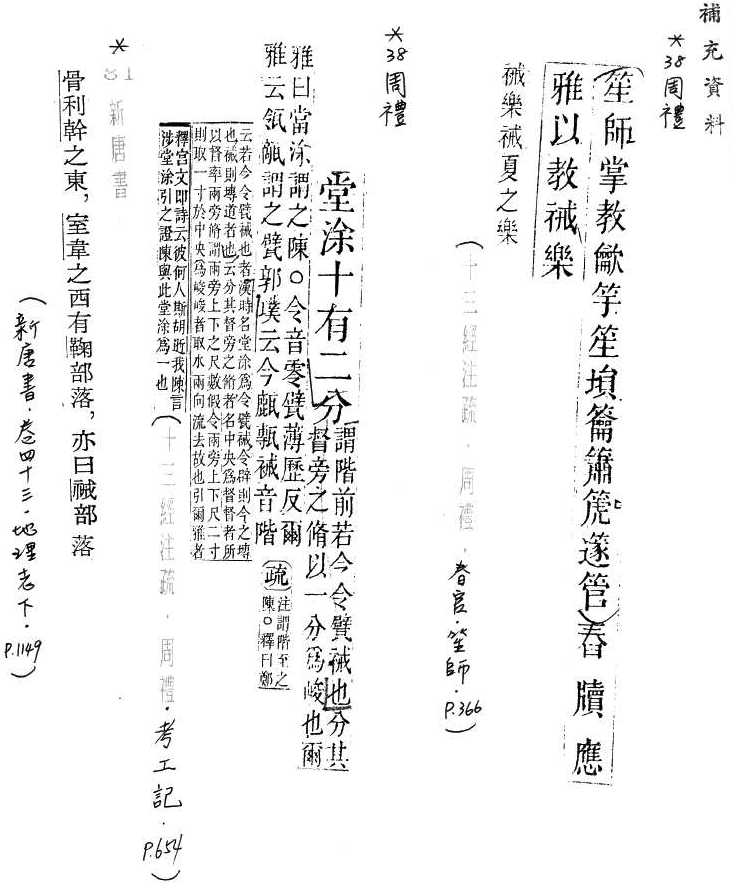 補充資料
*38周禮
笙師掌教龡竽笙塤籥簫篪篴管舂牘應
雅以教祴樂
祴樂祴夏之樂
(十三經注疏.周禮.春官.笙師.P.366)
*38周禮
堂涂十有二分
謂階前若今令甓祴也分其
督旁之脩以一分爲峻也爾
雅曰當涂謂之陳○令音零甓薄歷反爾
雅云瓴甋謂之甓郭璞云今甋甎祴音階
疏
注謂階至之
陳○釋曰鄭
云若今令甓祴也者漢時名堂涂爲令甓祴令辟則今之塼
也祴則塼道者也云分其督旁之脩者名中央爲督督者所
以督率兩旁脩謂兩旁上下之尺數假令兩旁上下尺二寸
則取一寸於中央爲峻峻者取水兩向流去故也引爾雅者
釋宮文即詩云彼何人斯胡逝我陳言
涉堂涂引之證陳與此堂涂爲一也
(十三經注疏.周禮.考工記.P.654)
*81新唐書
骨利幹之東，室韋之西有鞠部落，亦曰祴部落
(新唐書.卷四十三.地理志下.P.1149)